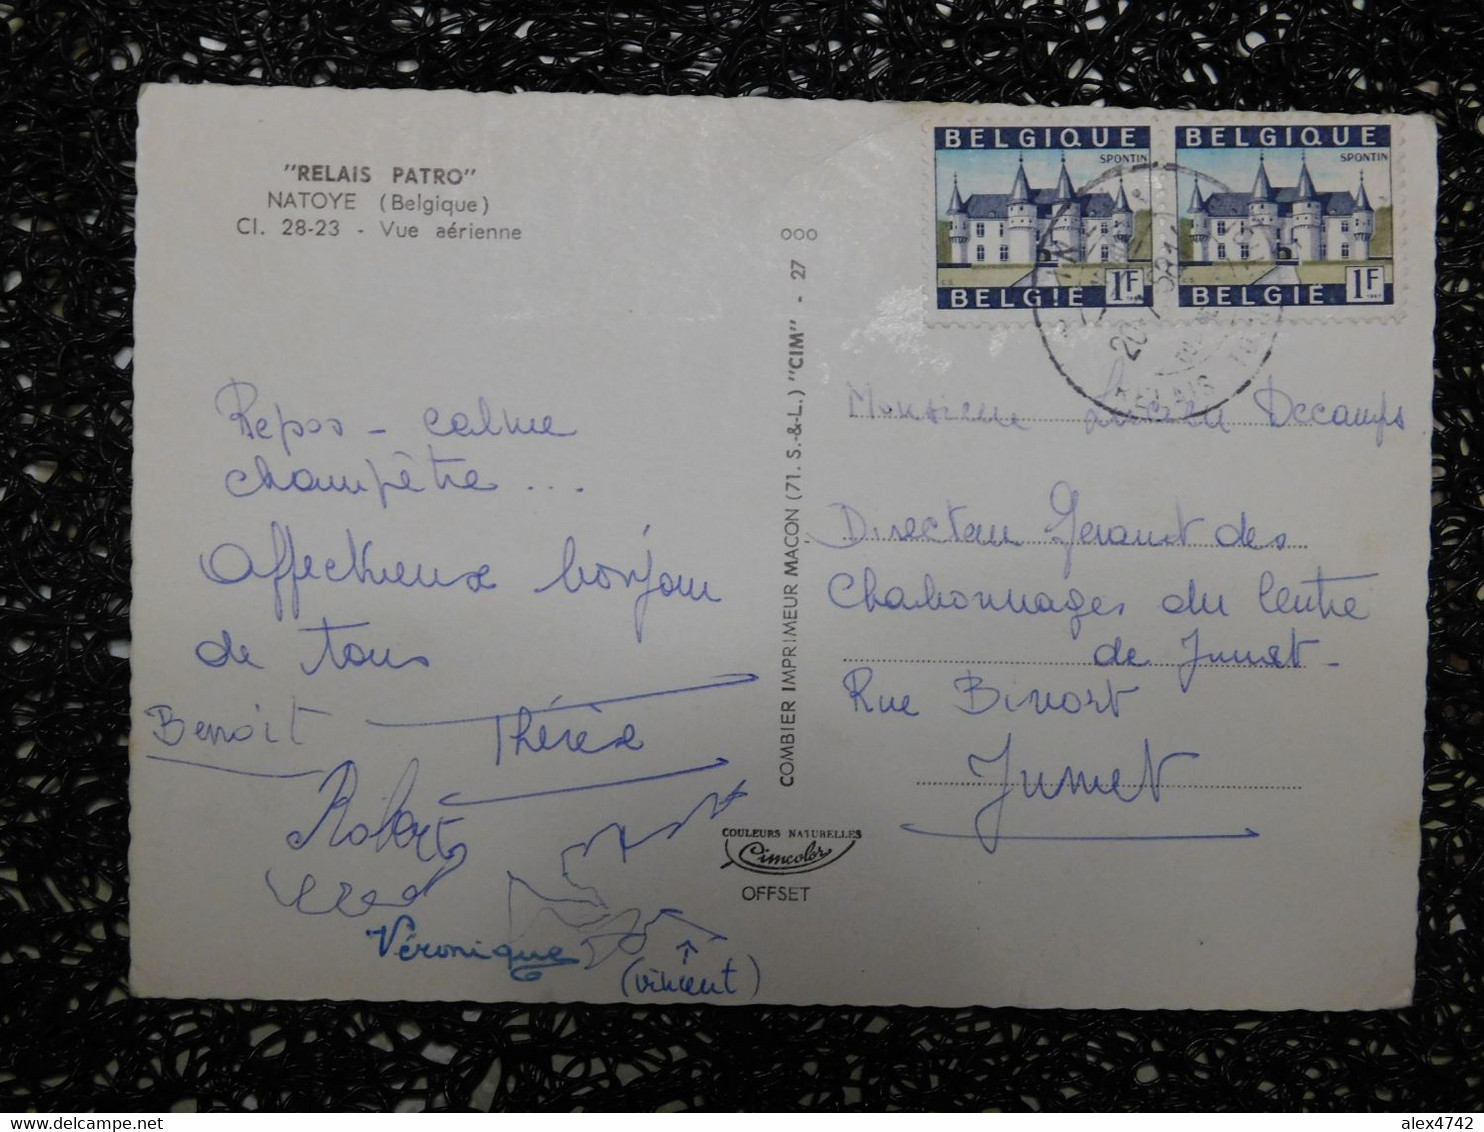 "RELAIS PATRO"
NATOYE (Belgique)
Cl. 28-23 - Vue aérienne
Repos - calme
champêtre ...
Affectueux bonjour
de tous
Benoit
Thérèse
Robert
Véronique
(Vincent)
COMBIER IMPRIMEUR MACON (71. S.-&-L.) "CIM" - 27 000
COULEURS NATURELLES
Cimcolor
OFFSET
BELGIQUE
SPONTIN
BELGIE 1F
BELGIQUE
SPONTIN
BELGIE 1F
RELAIS
Monsieur Lucien Decamps
Directeur Gerant des
Charbonnages du Centre
de Jumet -
Rue Binort
Jumet
alex4742